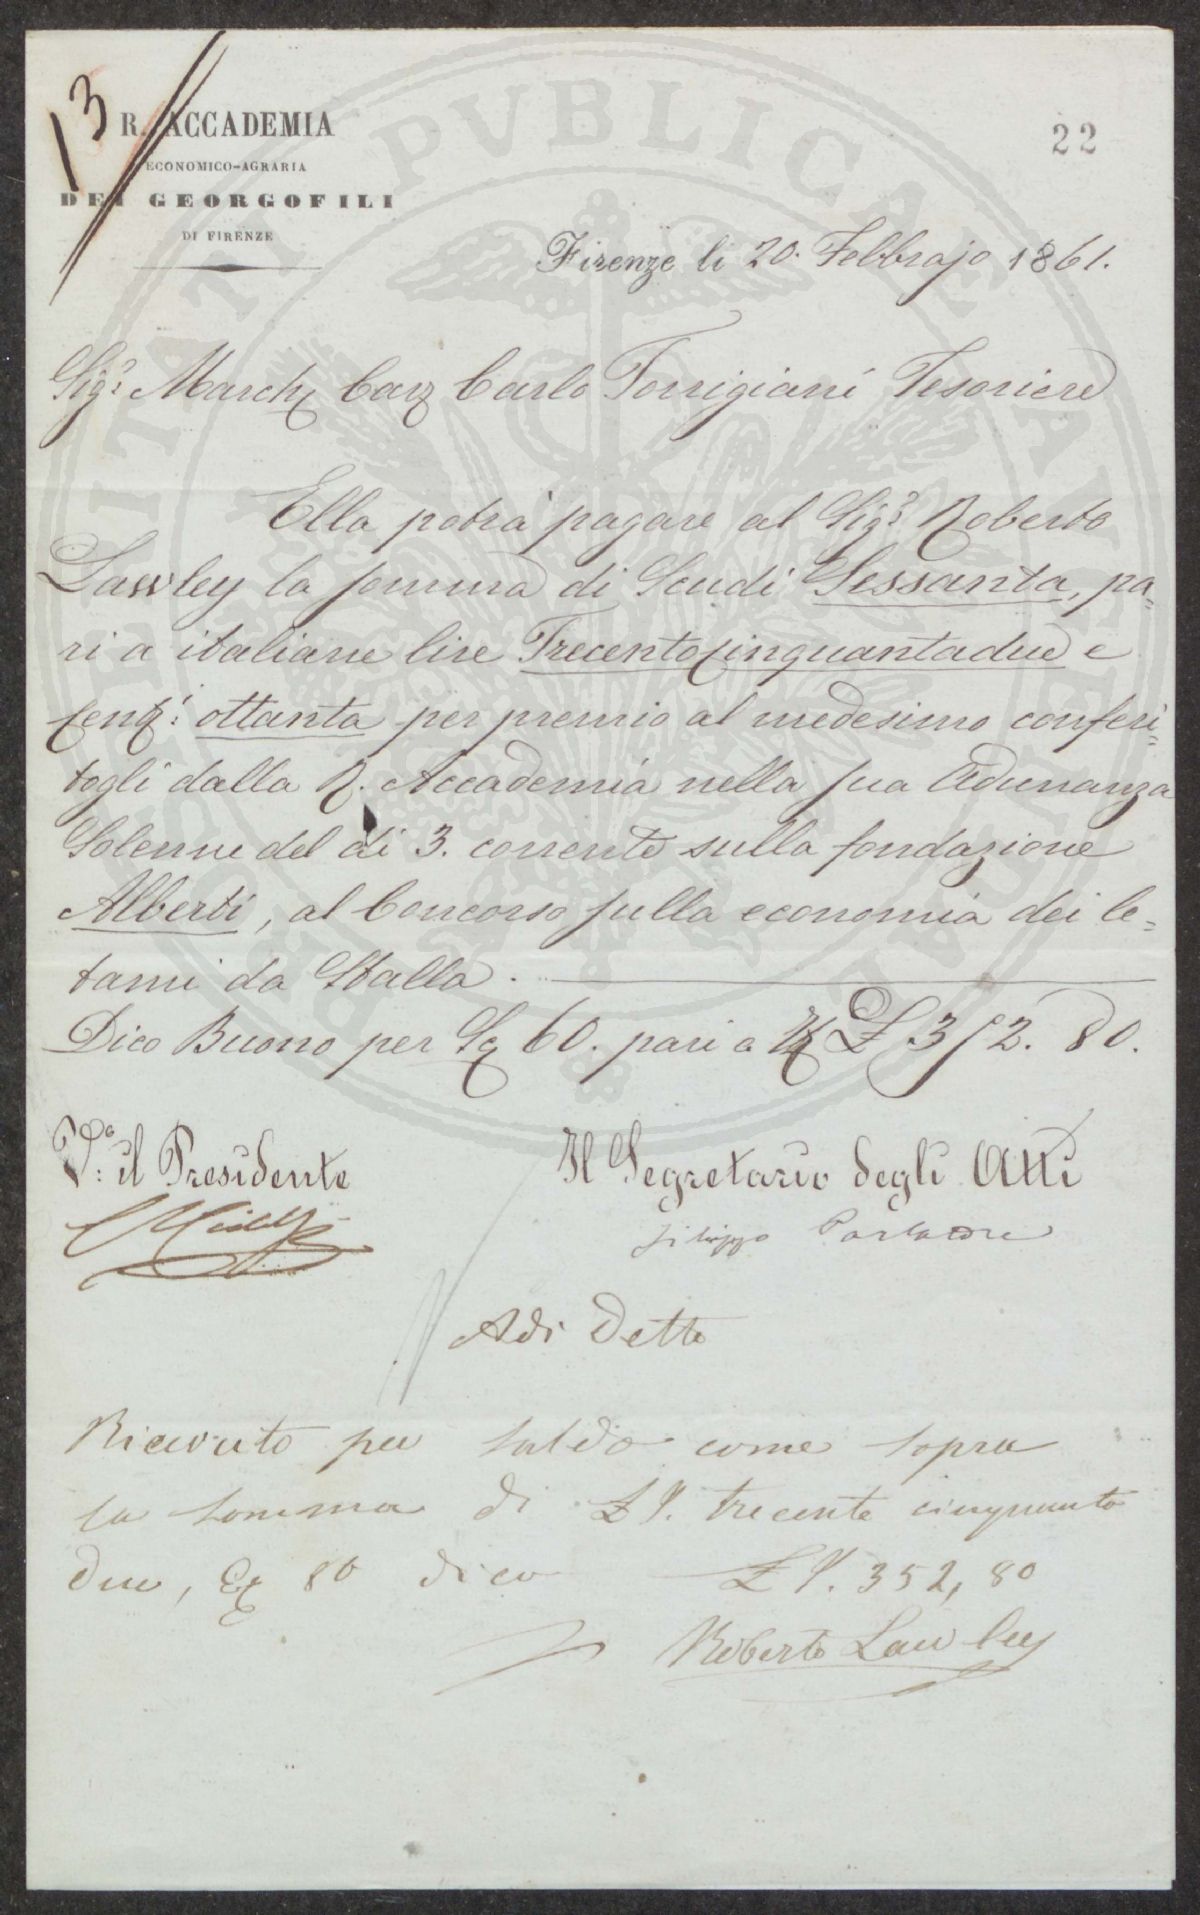 13
R. ACCADEMIA
ECONOMICO-AGRARIA
DEI GEORGOFILI
DI FIRENZE
22
Firenze li 20. Febbrajo 1861.
Sig.r March. Cav. Carlo Torrigiani Tesoriere
Ella potrà pagare al Sig.r Roberto
Lawley la somma di Scudi Sessanta, pa-
ri a italiane lire Trecentocinquantadue e
cent.i ottanta per premio al medesimo conferi-
togli dalla R. Accademia nella sua Adunanza
Solenne del di 3. corrente sulla fondazione
Alberti, al Concorso sulla economia dei le-
tami da Stalla.
Dico Buono per Sc. 60. pari a £ 352. 80.
V.o il Presidente
Il Segretario degli Atti
Filippo Parlatore
Adi Detto
Ricevuto per saldo come sopra
la somma di £ I. trecento cinquanta
due, C. 80 dico £ I. 352, 80
Roberto Lawley